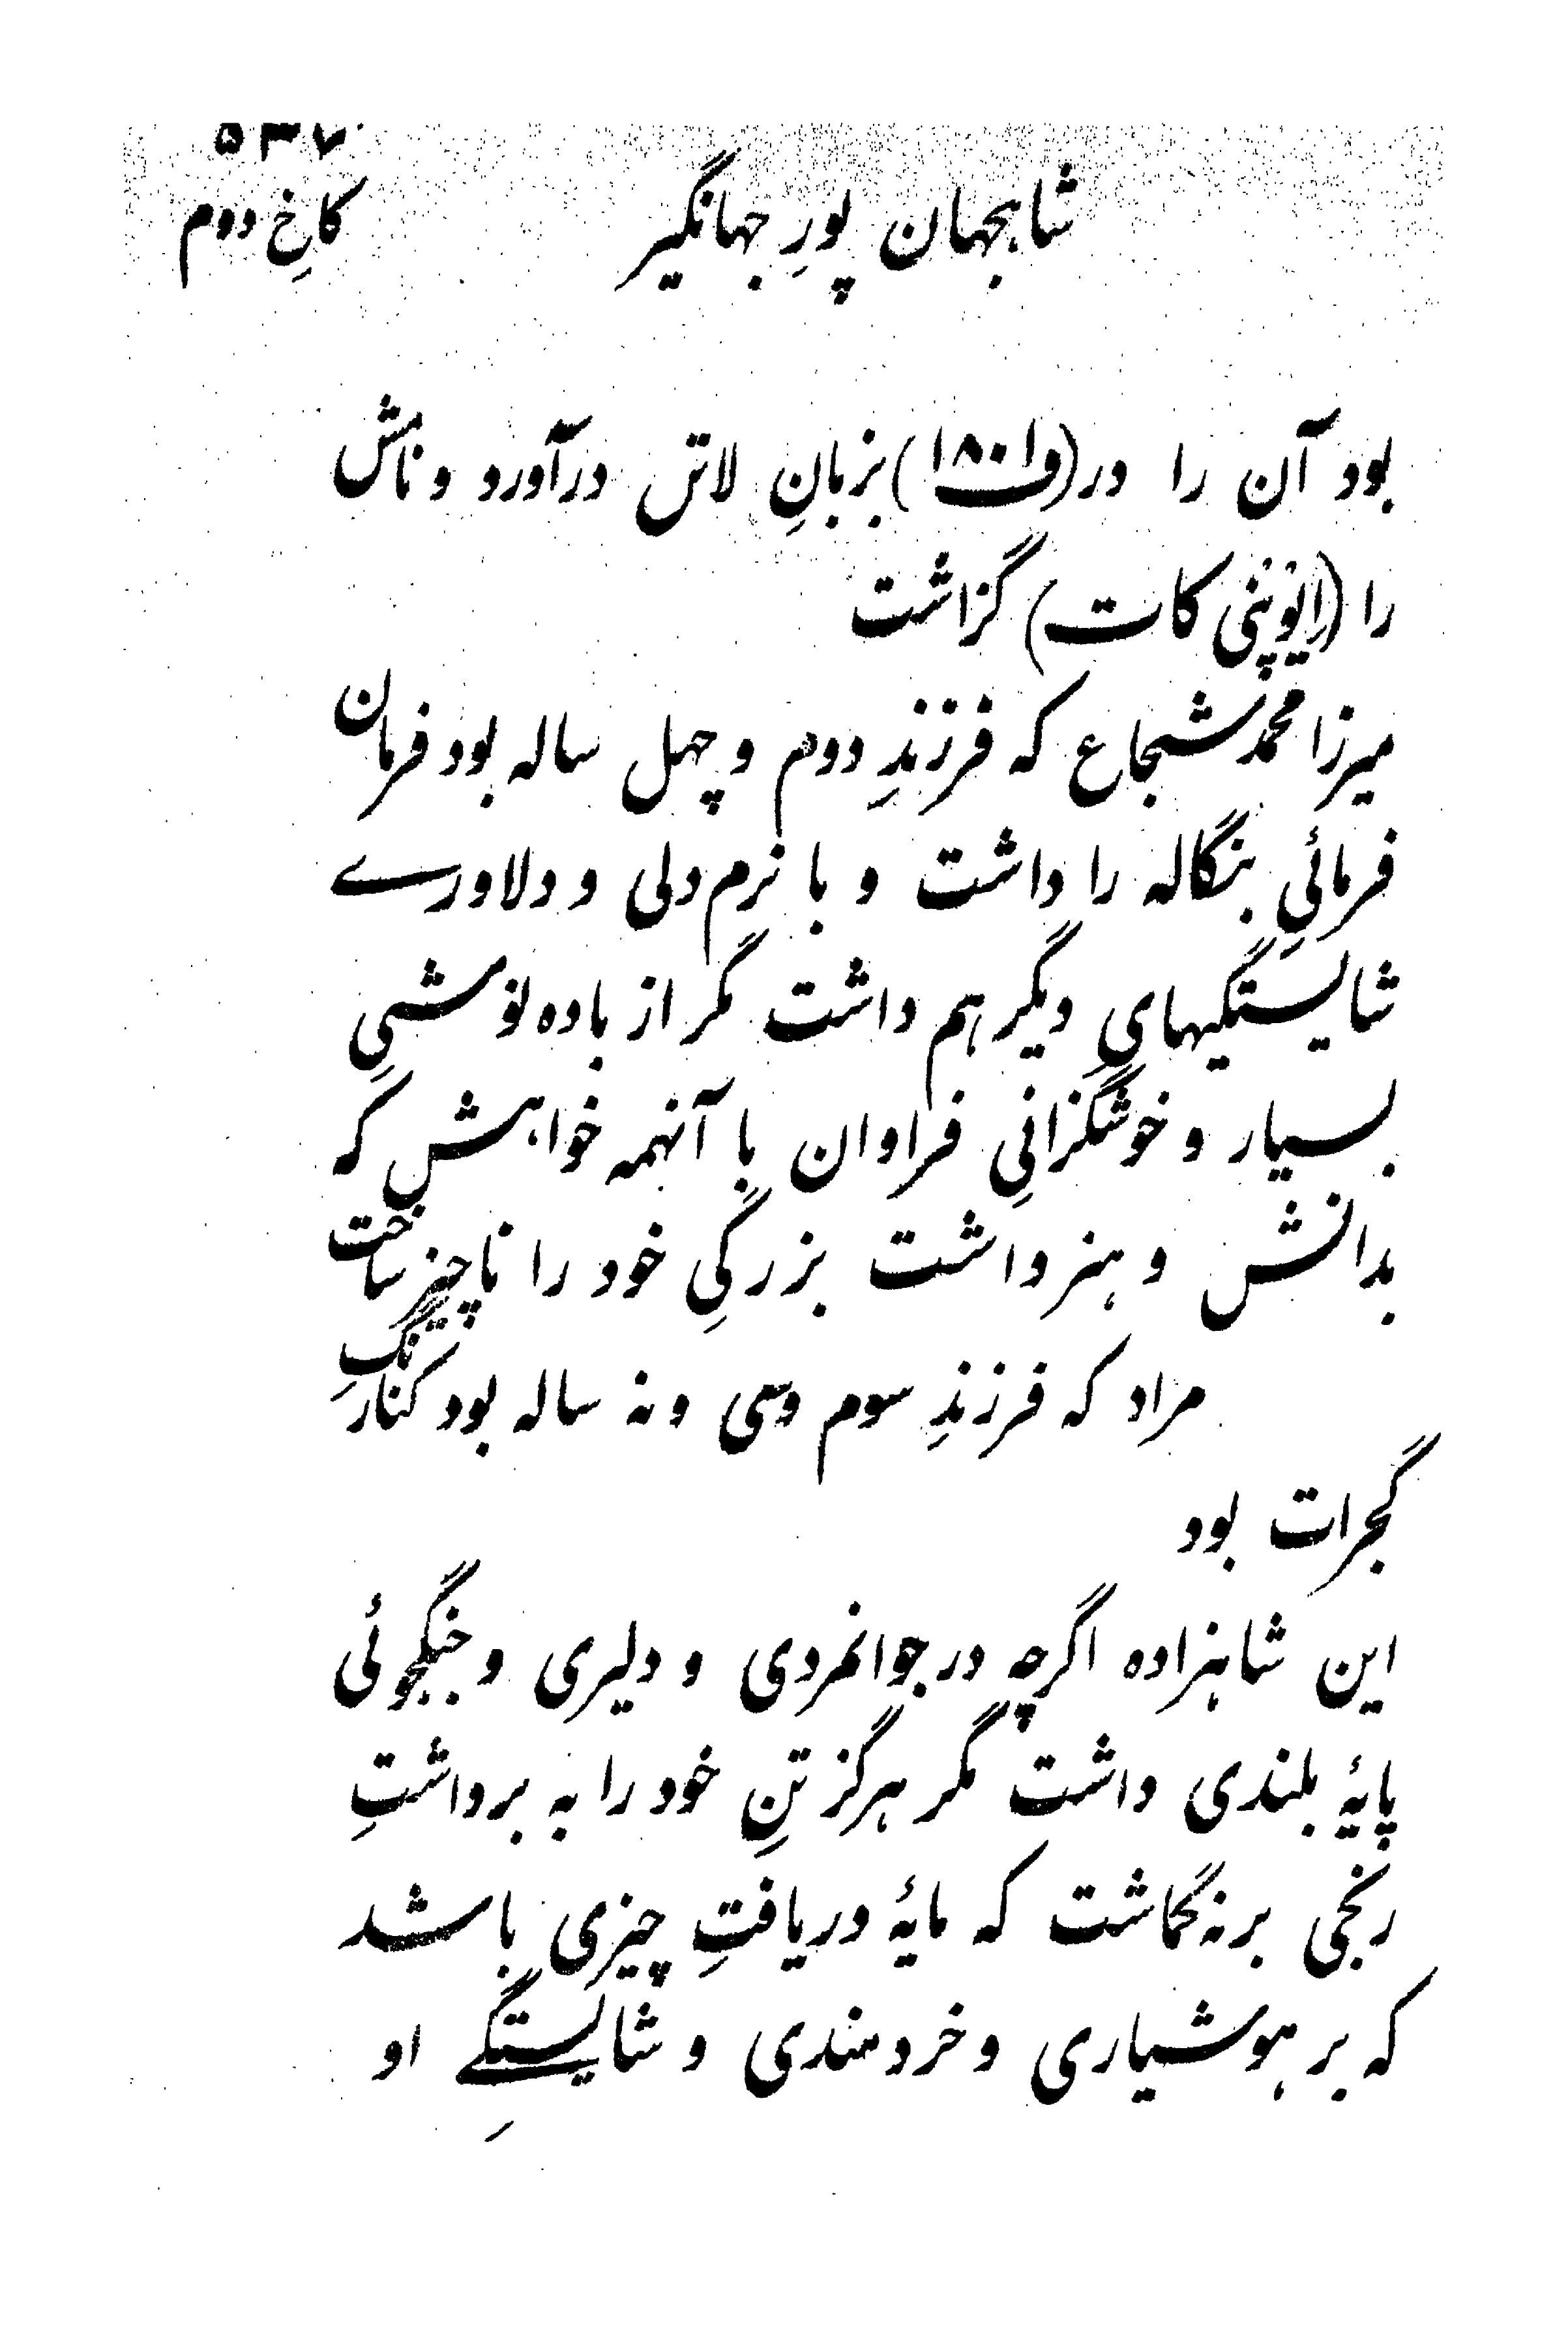 ۵۳۷
شاهجهان پورِ جهانگیر کاخِ دوم
بود آن را در (۱۸۰۱) بزبانِ لاتن درآورد و نامش
را (اِنوپنی کات) گزاشت
میرزا محمد شجاع که فرزندِ دوم و چهل ساله بود فرمان
فرمائیِ بنگاله را داشت و با نرم دلی و دلاورے
شایستگیهایِ دیگر هم داشت مگر از باده نوشیِ
بسیار و خوشگزرانیِ فراوان با آنهمه خواهش که
بدانش و هنر داشت بزرگیِ خود را ناچیز ساخت
مراد که فرزندِ سوم و سی و نه ساله بود کنارنگِ
گجرات بود
این شاهزاده اگرچه در جوانمردی و دلیری و جنگجوئی
پایهٔ بلندی داشت مگر هرگز تنِ خود را به برداشتِ
رنجی برنه گماشت که مایهٔ دریافتِ چیزی باشد
که بر هوشیاری و خردمندی و شایستگےِ او